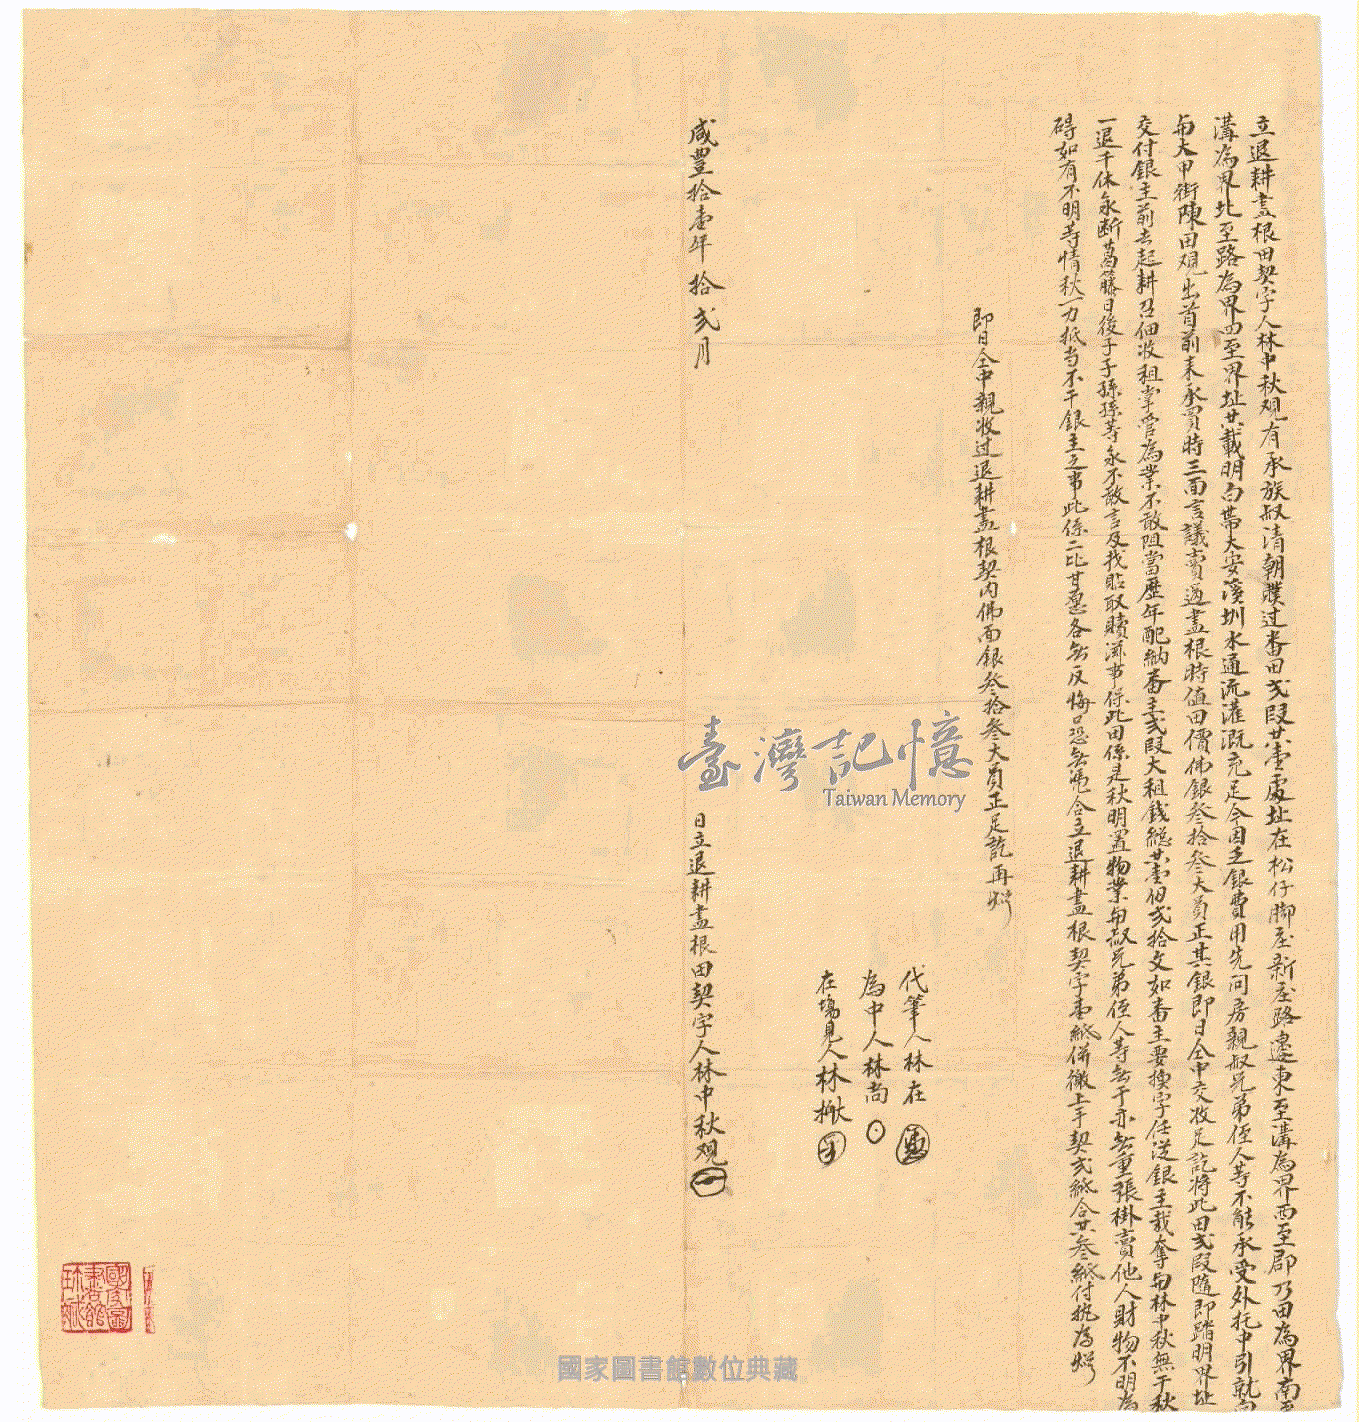 立退耕盡根田契字人林中秋观有承族叔清朝贌过番田弍段共壹處址在松仔脚庄新庄路邊東至溝為界西至郡乃田為界南至
溝為界北至路為界四至界址共載明白帶大安溪圳水通流灌溉充足今因乏銀費用先问房親叔兄弟侄人等不能承受外托中引就向
与大甲街陳田观出首前来承買時三面言議賣過盡根時值田價佛銀叁拾叁大員正其銀即日仝中交收足訖将此田弍段隨即踏明界址
交付銀主前去起耕召佃收租掌管為業不敢阻當歷年配納番主弍段大租錢總共壹佰弍拾文如番主要換字任従銀主裁奪与林中秋無干秋
一退千休永断葛藤日後子子孫孫等永不敢言及找貼取贖滋事保此田係是秋明置物業与叔兄弟侄人等无干亦无重張掛賣他人財物不明為
碍如有不明等情秋一力抵当不干銀主之事此係二比甘愿各无反悔口恐无凴合立退耕盡根契字壹紙併繳上手契弍紙合共叁紙付执為炤
即日仝中親收过退耕盡根契内佛面銀叁拾叁大員正足訖再炤
代筆人林在
為中人林尚
在塲見人林
咸豐拾壹年拾弍月
日立退耕盡根田契字人林中秋观
臺灣記憶
Taiwan Memory
國家圖書館數位典藏
國家圖
書館
珍藏